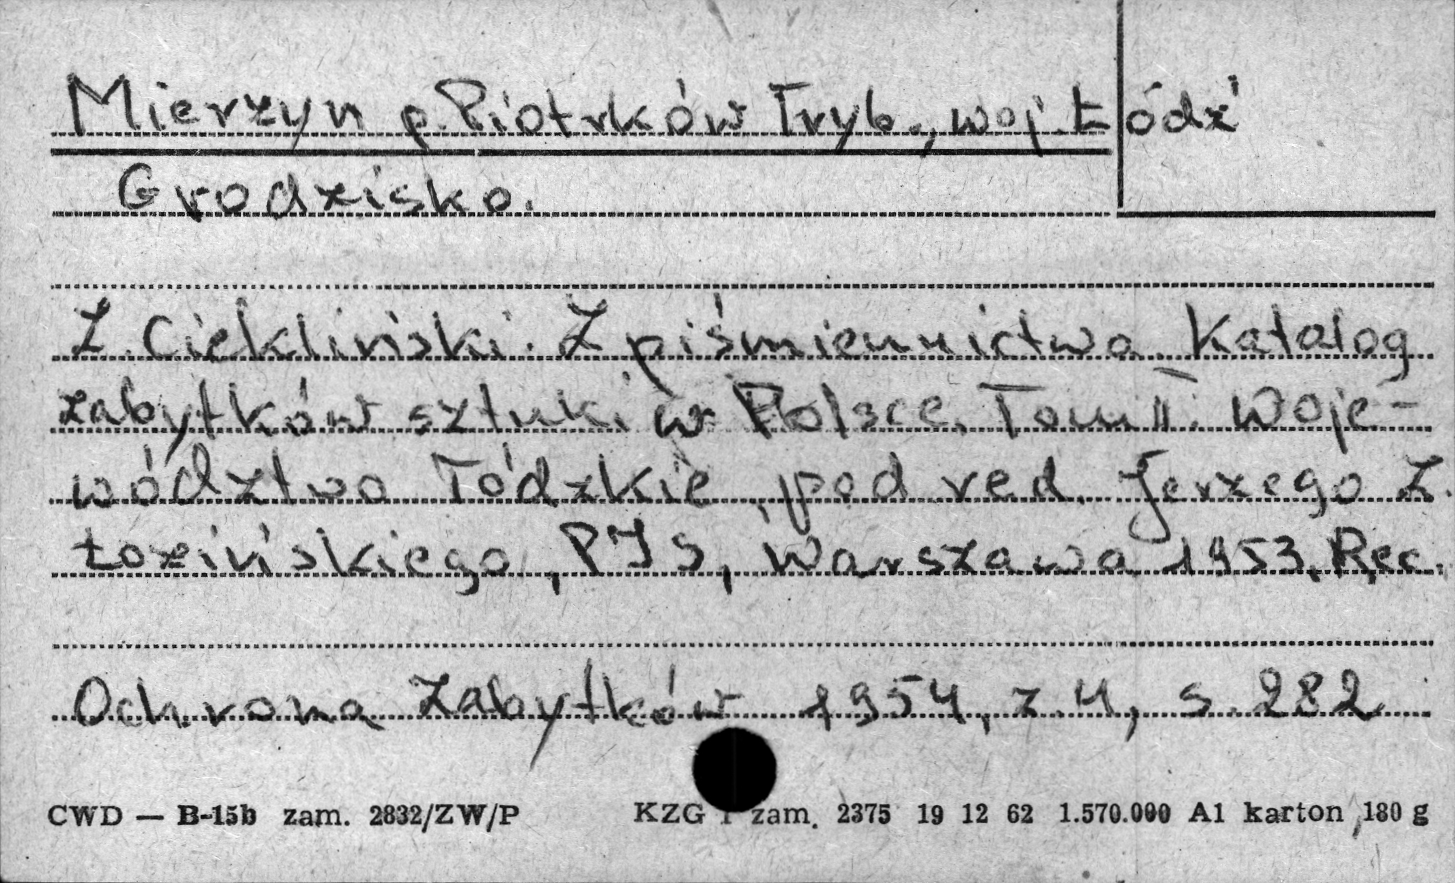 Mierzyn p. Piotrków Tryb., woj. Łódź
Grodzisko.
Z. Ciekliński. Z piśmiennictwa. Katalog
zabytków sztuki w Polsce. Tom II. Woje-
wództwo Łódzkie, pod red. Jerzego Z.
Łozińskiego, PIS, Warszawa 1953. Rec.
Ochrona Zabytków 1954, z. 4, s. 282
CWD — B-15b zam. 2832/ZW/P KZG 1 zam. 2375 19 12 62 1.570.000 A1 karton 180 g